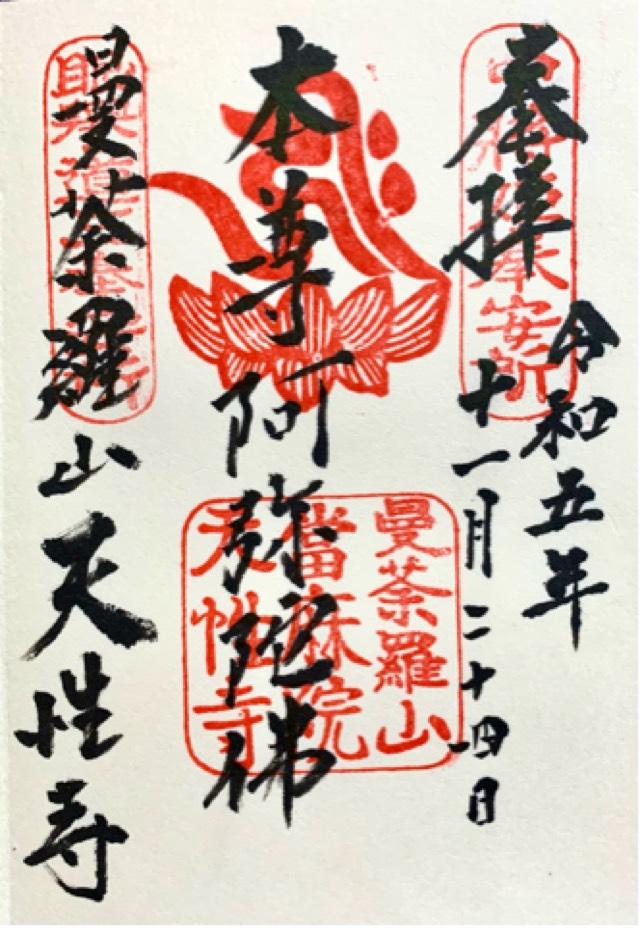 奉拝
令和五年
十一月二十四日
本尊阿弥陀佛
曼荼羅山天性寺
曼荼羅山
當麻院
天性寺